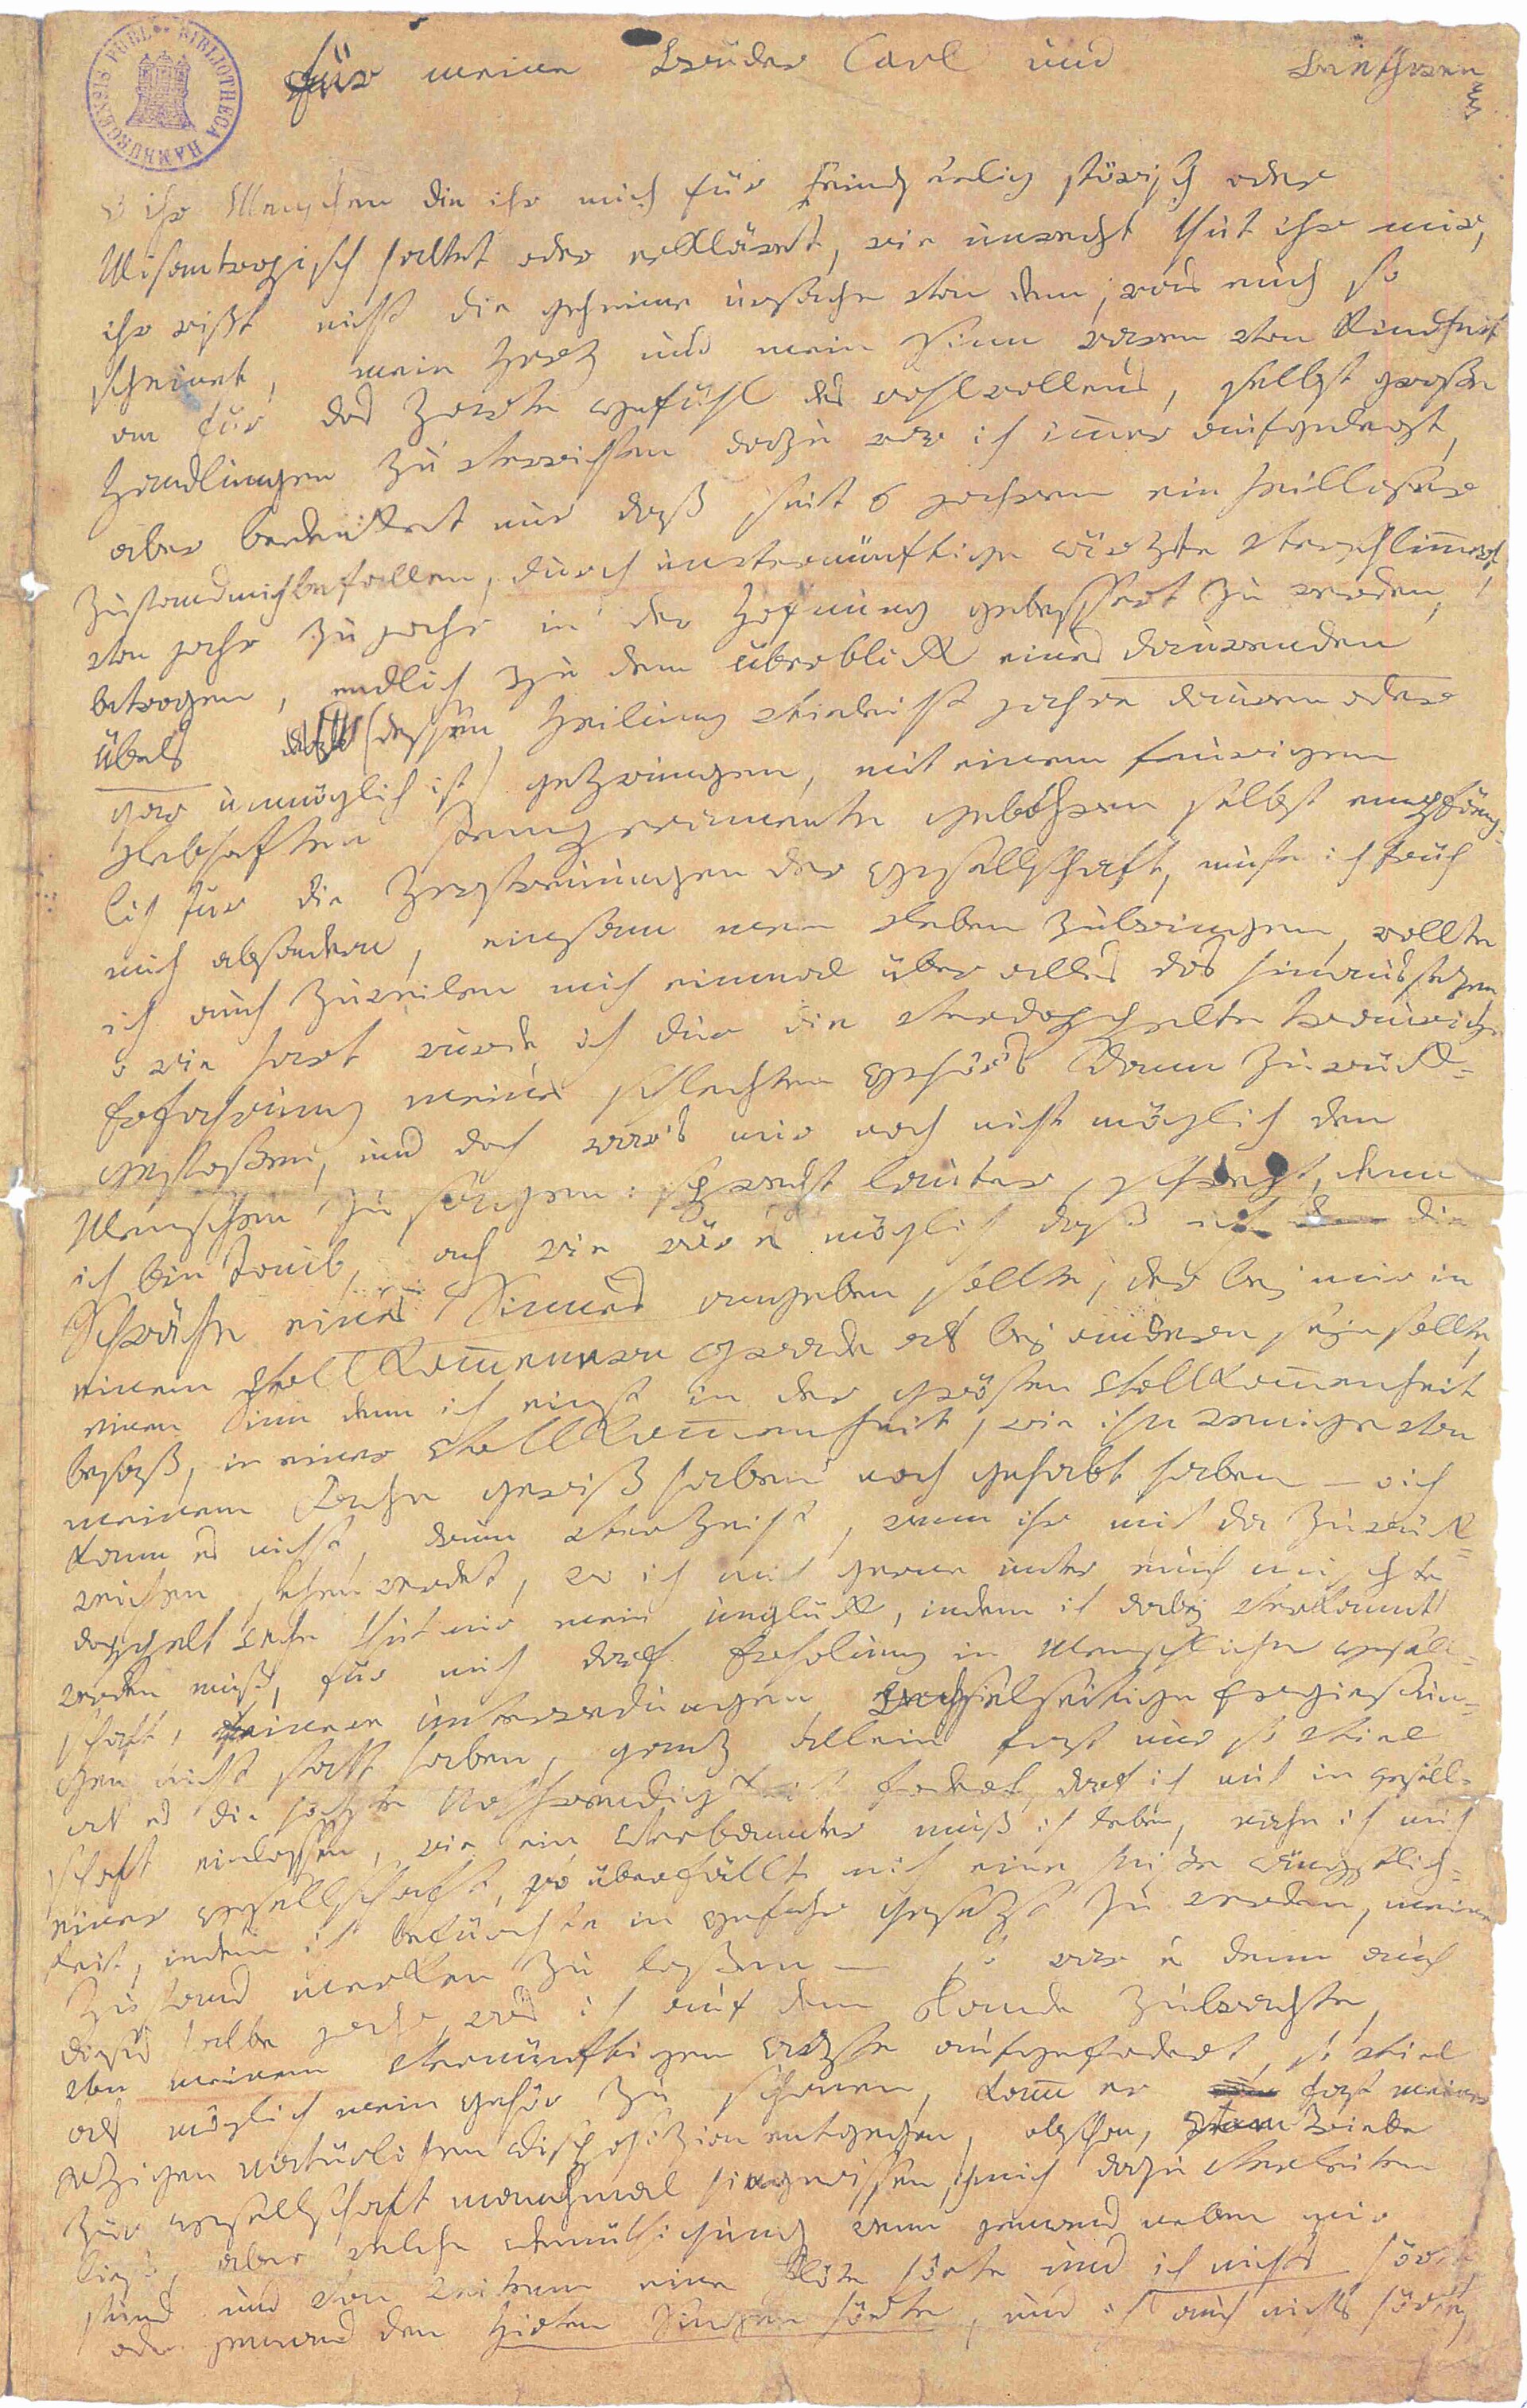 BIBLIOTHECA HAMBURGENSIS PUBL.
für meine Brüder Carl und Beethowen
o ihr Menschen die ihr mich für Feindseelig störisch oder
Misantropisch haltet oder erkläret, wie unrecht thut ihr mir,
ihr wißt nicht die geheime ursache von dem, was euch so
scheinet, mein Herz und mein Sinn waren von Kindheit
an für das Zarte gefühl des wohlwollens, selbst große
Handlungen zu verrichten dazu war ich immer aufgelegt,
aber bedenket nur daß seit 6 jahren ein heilloser
Zustand mich befallen, durch unvernünftige ärzte verschlimmert,
von jahr zu jahr in der Hofnung gebessert zu werden,
betrogen, endlich zu dem überblick eines daurenden
Übels (dessen Heilung vieleicht jahre dauren oder
gar unmöglich ist) gezwungen, mit einem feurigen
Lebhaften Temperamente gebohren selbst empfäng-
lich für die Zerstreuungen der gesellschaft, muste ich früh
mich absondern, einsam mein Leben zubringen, wollte
ich auch zuweilen mich einmal über alles das hinaussezen,
o wie hart wurde ich dur die verdoppelte traurige
Erfahrung meines schlechten gehör's dann zurück-
gestoßen, und doch war's mir noch nicht möglich den
Menschen zu sagen: sprecht lauter, schrejt, denn
ich bin Taub, ach wie wär es möglich daß ich die
Schwäche eines Sinnes angeben sollte, der bej mir in
einem vollkommenern grade als bej andern sejn sollte,
einen sinn denn ich einst in der grösten vollkommenheit
besaß, in einer vollkommenheit, wie ihn wenige von
meinem Fache gewiß haben noch gehabt haben — o ich
kann es nicht, drum verzeiht, wenn ihr mich da zurück-
weichen sehen werdet, wo ich mich gerne unter euch mischte
doppelt wehe thut mir mein unglück, indem ich dabej verkannt
werden muß, für mich darf Erholung in Menschlicher gesell-
schaft, feinere unterredungen, wechselseitige Ergießun-
gen nicht statt haben, ganz allein fast nur so viel
als es die höchste Nothwendigkeit fodert, darf ich mich in gesell-
schaft einlassen, wie ein Verbannter muß ich leben, nahe ich mich
einer gesellschaft, so überfällt mich eine heiße ängstlich-
keit, indem ich befürchte in gefahr gesezt zu werden, meinen
Zustand merken zu laßen — so war es denn auch
dieses halbe jahr, was ich auf dem Lande zubrachte,
von meinem vernünftigen arzte aufgefodert, so viel
als möglich mein gehör zu schonen, kamm er fast meiner
jezigen natürlichen Disposizion entgegen, obschon, vom Triebe
zur gesellschaft manchmal hingerissen, ich mich dazu verleiten
ließ, aber welche demüthigung wenn jemand neben mir
stund und von weitem eine flöte hörte und ich nichts hörte,
oder jemand den Hirten Singen hörte, und ich auch nichts hörte,